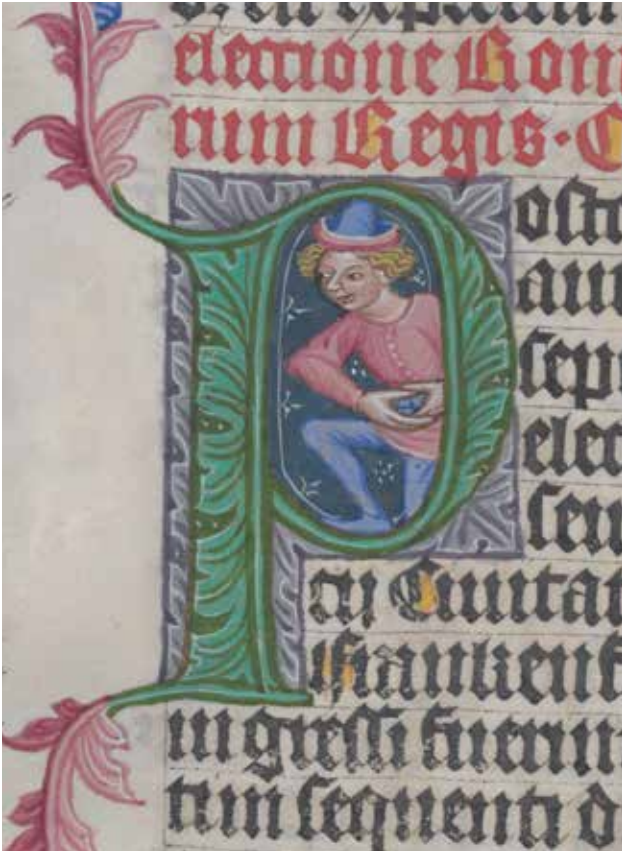 eleccione Rom
rum Regis · C
Post
aut
sep
elec
seu
cij Ciuitat
ffrankenf
ingressi fuerin
tim sequenti d